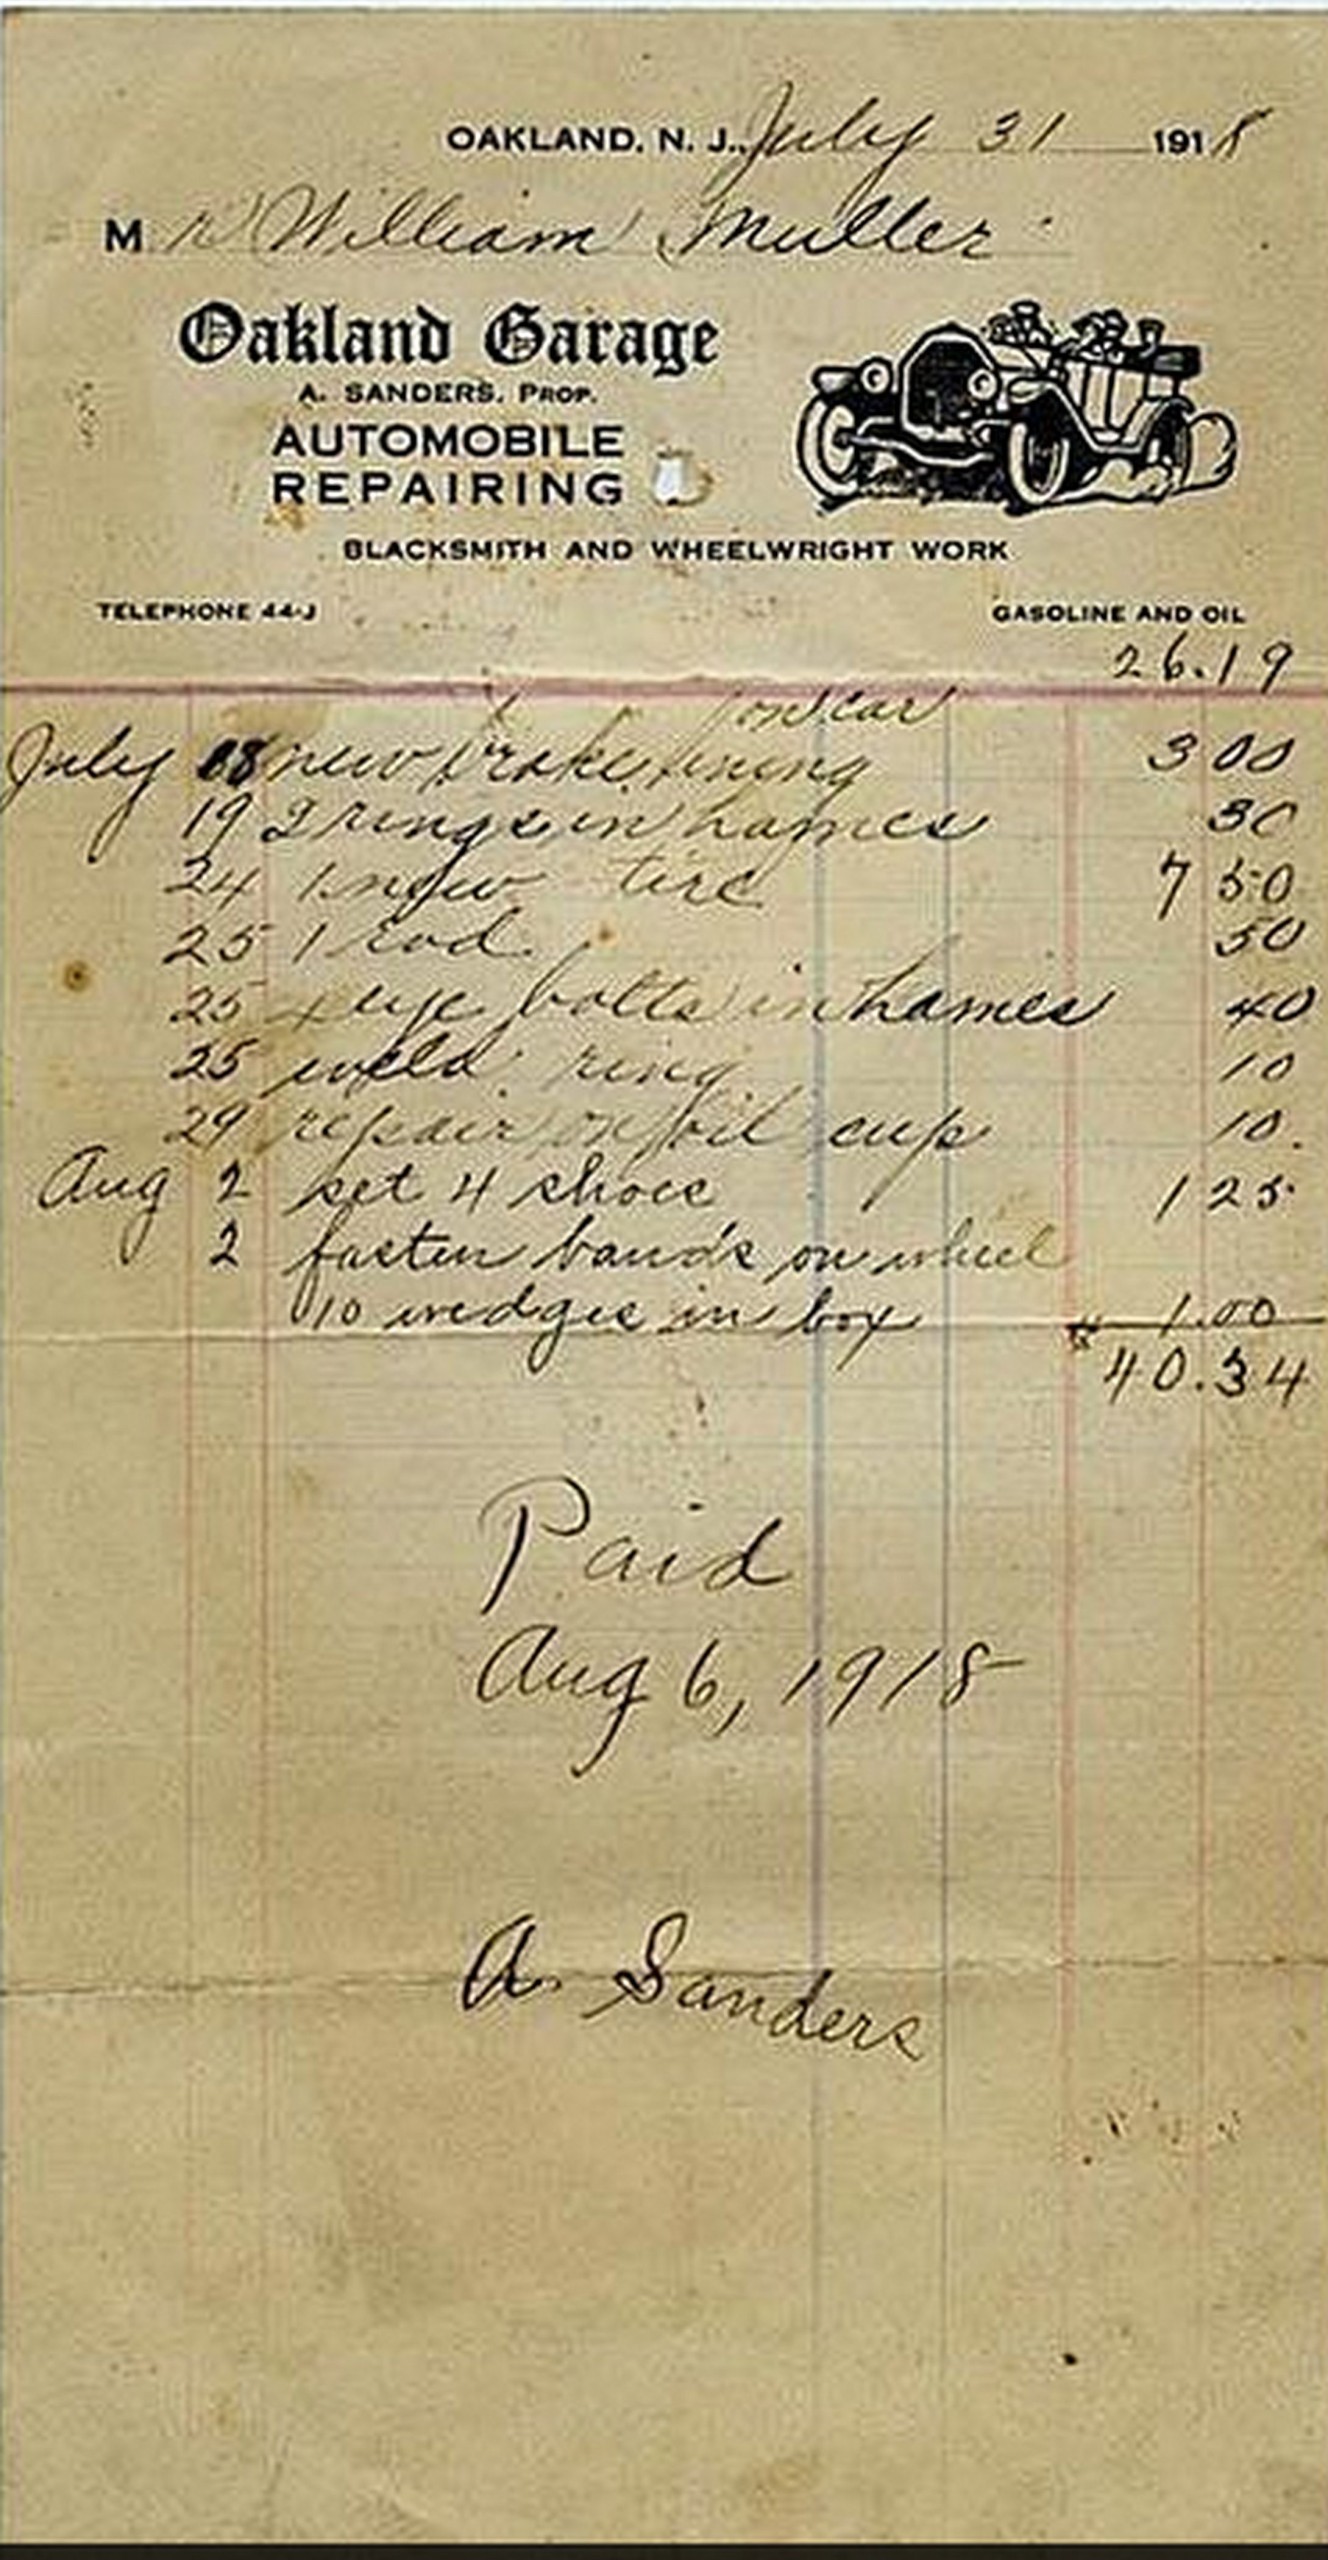 OAKLAND, N. J., July 31 1918
Mr William Muller
Oakland Garage
A. SANDERS, PROP.
AUTOMOBILE
REPAIRING
BLACKSMITH AND WHEELWRIGHT WORK
TELEPHONE 44-J GASOLINE AND OIL
26.19
on car
July 18 new brake lining 3 00
19 2 rings in hames 30
24 1 new tire 7 50
25 1 rod 50
25 eye bolts in hames 40
25 weld ring 10
29 repair on oil cup 10.
Aug 2 set 4 shoes 1 25
2 fasten bands on wheel
10 wedges in box 1.00
$ 40.34
Paid
Aug 6, 1918
A. Sanders